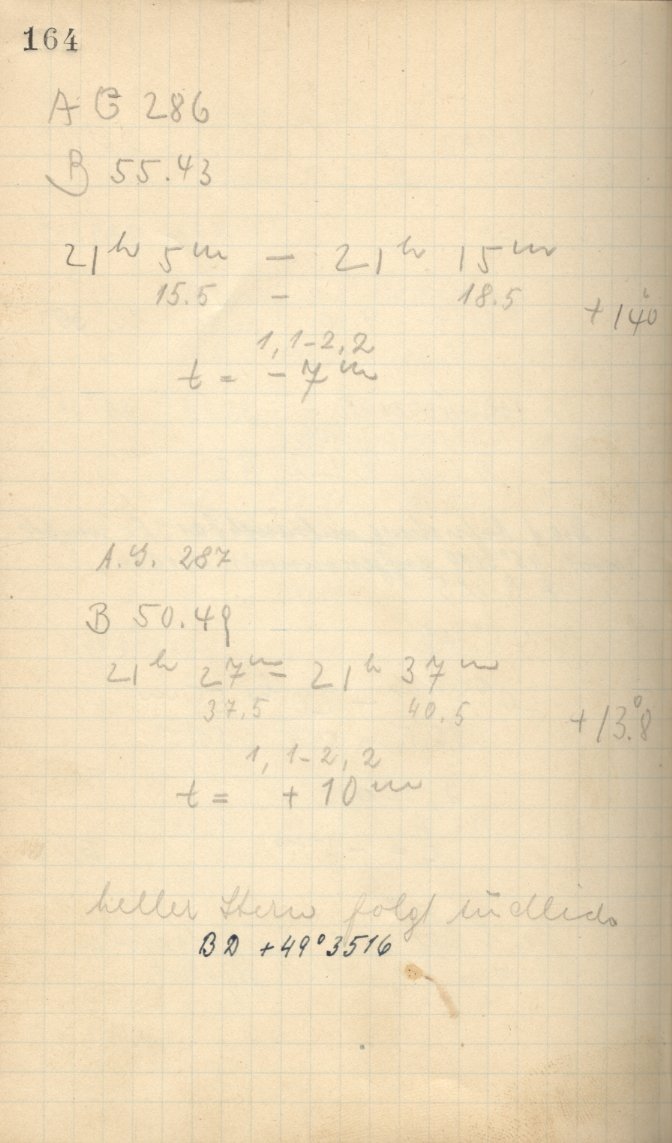 164
A G 286
B 55.43
21 h 5 m – 21 h 15 m
15.5 – 18.5 +14.°0
1, 1-2, 2
t = – 7 m
A.G. 287
B 50.49
21 h 27 m = 21 h 37 m
37.5 40.5 +13.°8
1, 1-2, 2
t = + 10 m
heller Stern folgt südlich
BD +49°3516